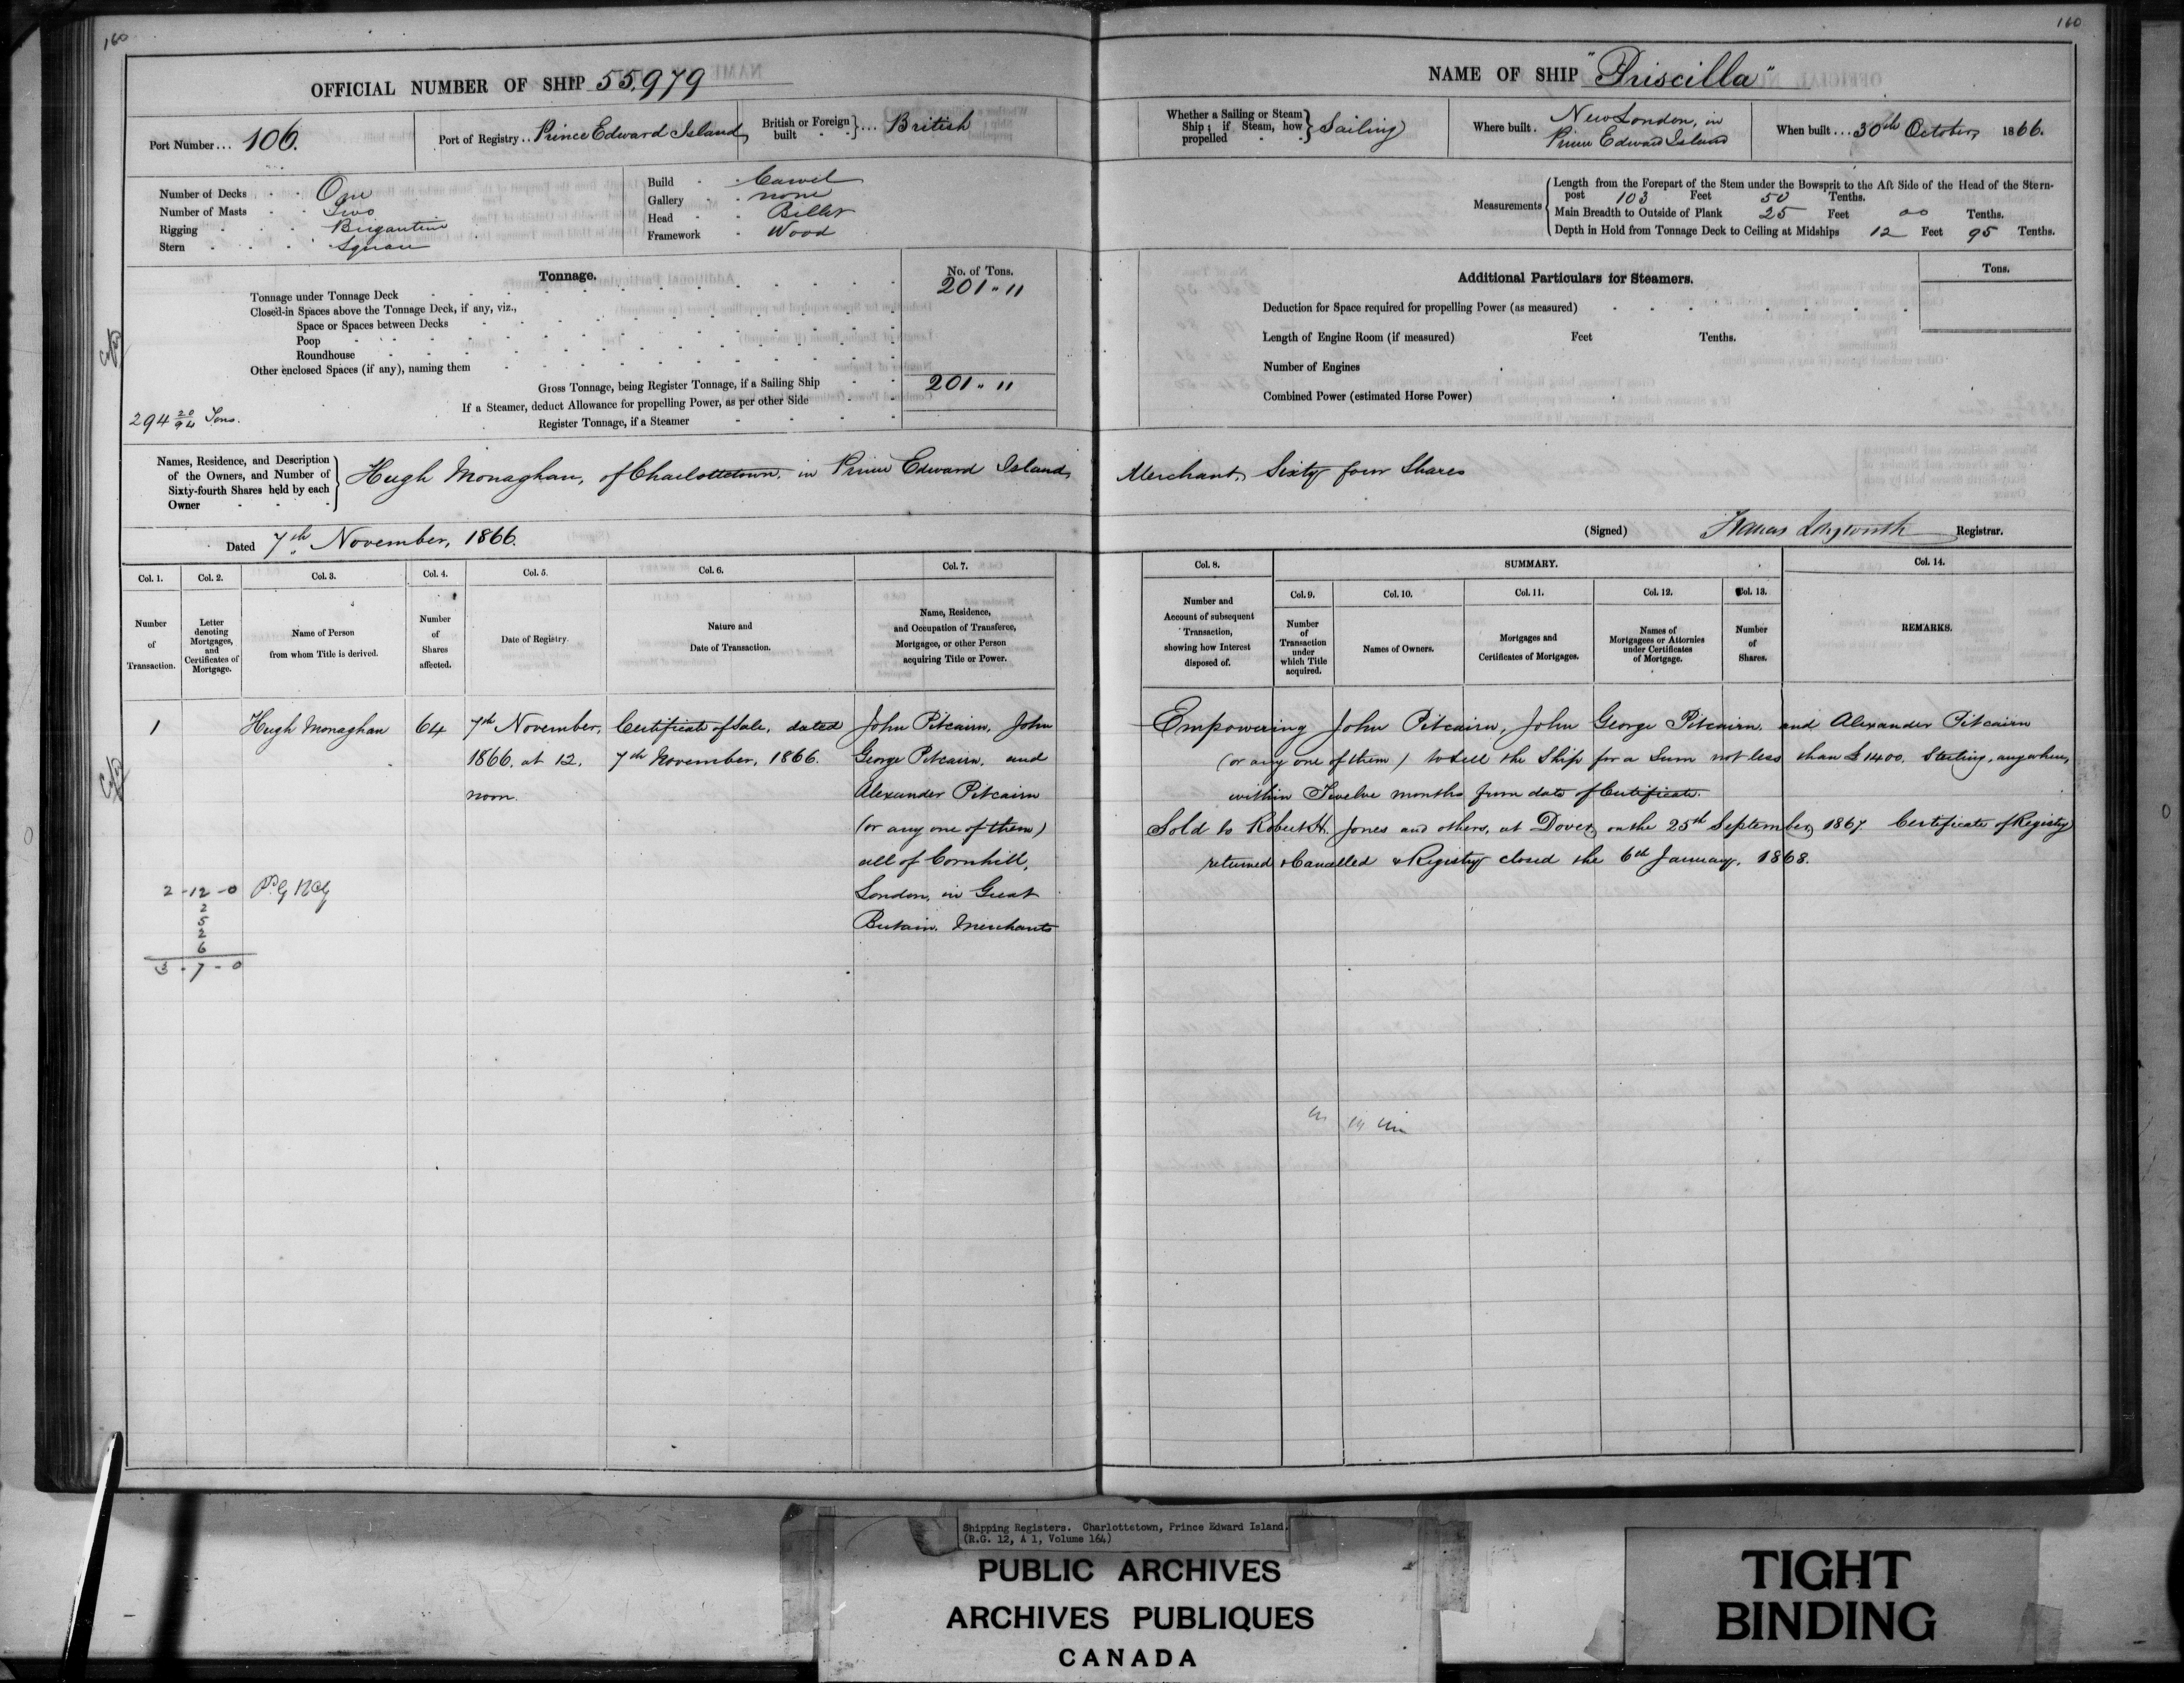 160
OFFICIAL NUMBER OF SHIP 55,979
Port Number... 106.
Port of Registry.. Prince Edward Island
British or Foreign built } ... British
Number of Decks One
Number of Masts Two
Rigging Brigantine
Stern Square
Build Carvel
Gallery none
Head Billet
Framework Wood
Tonnage.
No. of Tons.
Tonnage under Tonnage Deck 201 " 11
Closed-in Spaces above the Tonnage Deck, if any, viz.,
Space or Spaces between Decks
Poop
Roundhouse
Other enclosed Spaces (if any), naming them
Gross Tonnage, being Register Tonnage, if a Sailing Ship 201 " 11
If a Steamer, deduct Allowance for propelling Power, as per other Side
294 20/94 Tons.
Register Tonnage, if a Steamer
Names, Residence, and Description
of the Owners, and Number of
Sixty-fourth Shares held by each
Owner
Hugh Monaghan, of Charlottetown, in Prince Edward Island,
Dated 7th November, 1866.
Col. 1.
Number
of
Transaction.
Col. 2.
Letter
denoting
Mortgages,
and
Certificates of
Mortgage.
Col. 3.
Name of Person
from whom Title is derived.
Col. 4.
Number
of
Shares
affected.
Col. 5.
Date of Registry.
Col. 6.
Nature and
Date of Transaction.
Col. 7.
Name, Residence,
and Occupation of Transferee,
Mortgagee, or other Person
acquiring Title or Power.
1
Hugh Monaghan
64
7th November,
1866. at 12.
noon.
Certificate of Sale, dated
7th November, 1866.
John Pitcairn, John
George Pitcairn, and
Alexander Pitcairn
(or any one of them)
all of Cornhill,
London, in Great
Britain. Merchants
2 - 12 - 0
2
5
2
6
3 - 7 - 0
160
NAME OF SHIP "Priscilla"
Whether a Sailing or Steam
Ship; if Steam, how
propelled
Sailing
Where built. New London, in
Prince Edward Island
When built... 30th October, 1866.
Measurements
Length from the Forepart of the Stem under the Bowsprit to the Aft Side of the Head of the Stern-
post 103 Feet 50 Tenths.
Main Breadth to Outside of Plank 25 Feet 00 Tenths.
Depth in Hold from Tonnage Deck to Ceiling at Midships 12 Feet 95 Tenths.
Additional Particulars for Steamers.
Tons.
Deduction for Space required for propelling Power (as measured)
Length of Engine Room (if measured) Feet Tenths.
Number of Engines
Combined Power (estimated Horse Power)
Merchant, Sixty four Shares
(Signed) Francis Longworth Registrar.
Col. 8.
Number and
Account of subsequent
Transaction,
showing how Interest
disposed of.
SUMMARY.
Col. 9.
Number
of
Transaction
under
which Title
acquired.
Col. 10.
Names of Owners.
Col. 11.
Mortgages and
Certificates of Mortgages.
Col. 12.
Names of
Mortgagees or Attornies
under Certificates
of Mortgage.
Col. 13.
Number
of
Shares.
Col. 14.
REMARKS.
Empowering John Pitcairn, John George Pitcairn, and Alexander Pitcairn
(or any one of them) to sell the Ship for a Sum not less than £1400. Sterling, anywhere,
within Twelve months from date of Certificate.
Sold to Robert H. Jones and others, at Dover, on the 25th September, 1867. Certificate of Registry
returned & Cancelled & Registry closed the 6th January, 1868.
Shipping Registers. Charlottetown, Prince Edward Island.
(R.G. 12, A 1, Volume 164)
PUBLIC ARCHIVES
ARCHIVES PUBLIQUES
CANADA
TIGHT
BINDING